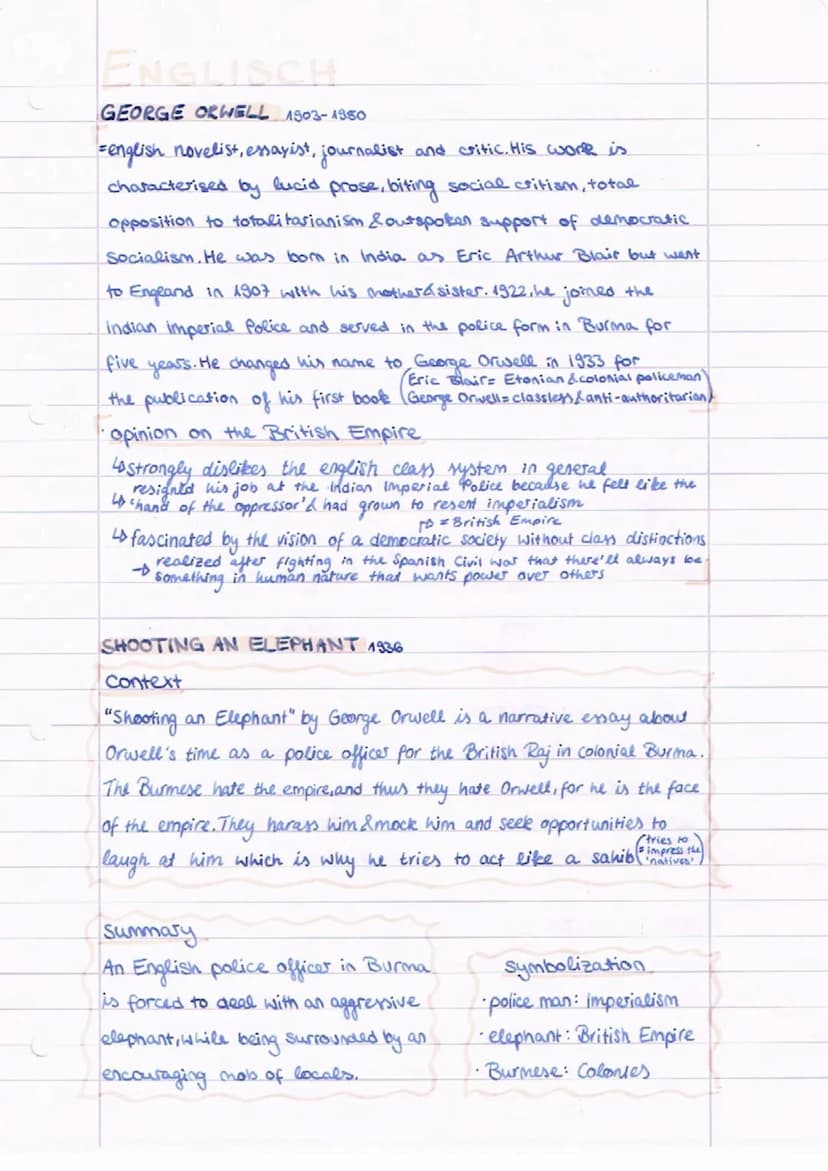 ENGLISCH
GEORGE ORWELL 1903-1950
=english novelist, essayist, journalist and critic. His work is
characterised by lucid prose, biting social critism, total
opposition to totalitarianism & outspoken support of democratic
Socialism. He was born in India as Eric Arthur Blair but went
to England in 1907 with his mother&sister. 1922, he joined the
Indian Imperial Police and served in the police form in Burma for
five years. He changed his name to George Orwell in 1933 for
the publication of his first book (Eric Blair= Etonian & colonial policeman
George Orwell= classless & anti-authoritarian)
· opinion on the British Empire
↳ strongly dislikes the english class system in general
↳ resigned his job at the Indian Imperial Police because he felt like the
'hand of the oppressor' & had grown to resent imperialism
↳ = British Empire
↳ fascinated by the vision of a democratic society without class distinctions
→ realized after fighting in the Spanish Civil War that there'll always be
something in human nature that wants power over others
SHOOTING AN ELEPHANT 1936
Context
"Shooting an Elephant" by George Orwell is a narrative essay about
Orwell's time as a police officer for the British Raj in colonial Burma.
The Burmese hate the empire, and thus they hate Orwell, for he is the face
of the empire. They harass him & mock him and seek opportunities to
laugh at him which is why he tries to act like a sahib (= tries to
impress the
'natives')
Summary
An English police officer in Burma
is forced to deal with an aggressive
elephant, while being surrounded by an
encouraging mob of locals.
symbolization
· police man: Imperialism
· elephant: British Empire
· Burmese: Colonies